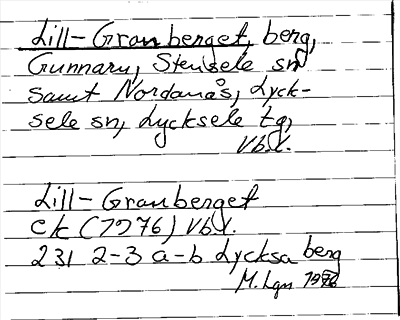 Lill-Granberget, berg,
Gunnarn, Stensele sn
samt Nordanås, Lyck-
sele sn, Lycksele tg,
Vb.l.
Lill-Granberget
ek (7276) Vb.l.
231 2-3 a-b Lycksa berg
M. Lgn